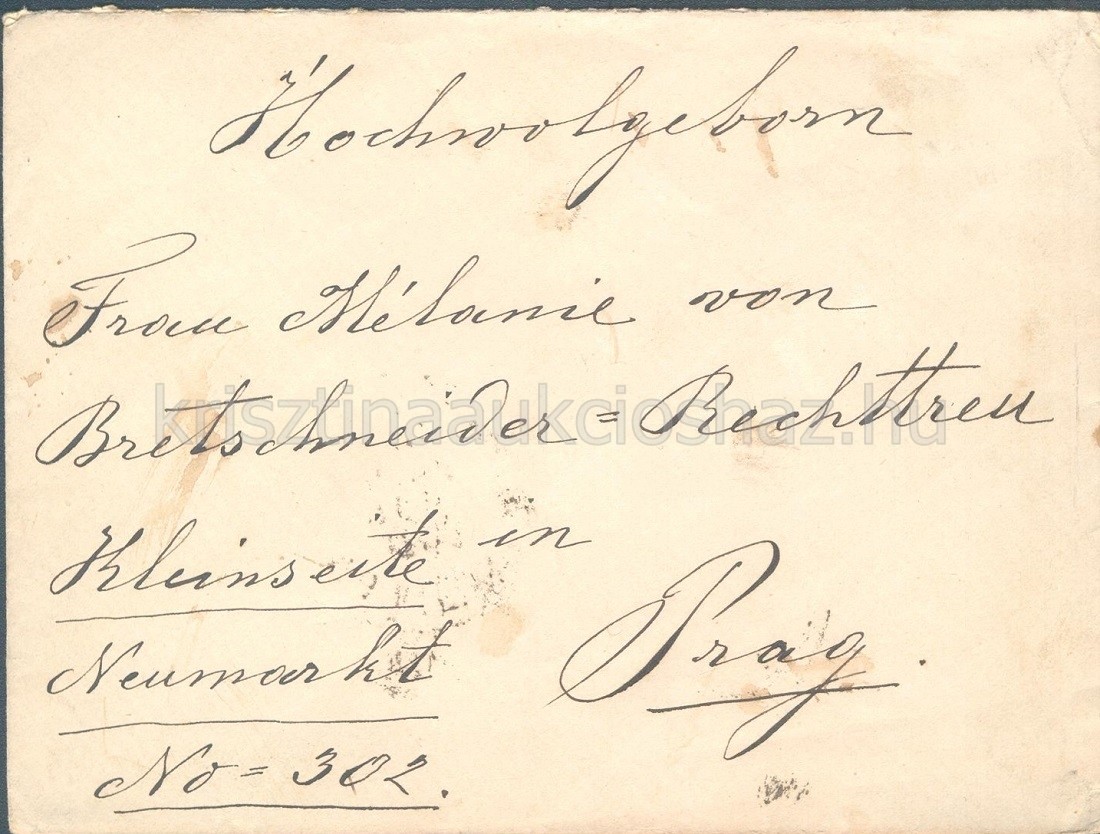 Hochwolgeborn
Frau Mélanie von
Bretschneider = Rechttreu
Kleinseite in
Neumarkt Prag.
No = 302.
krisztinaaukcioshaz.hu